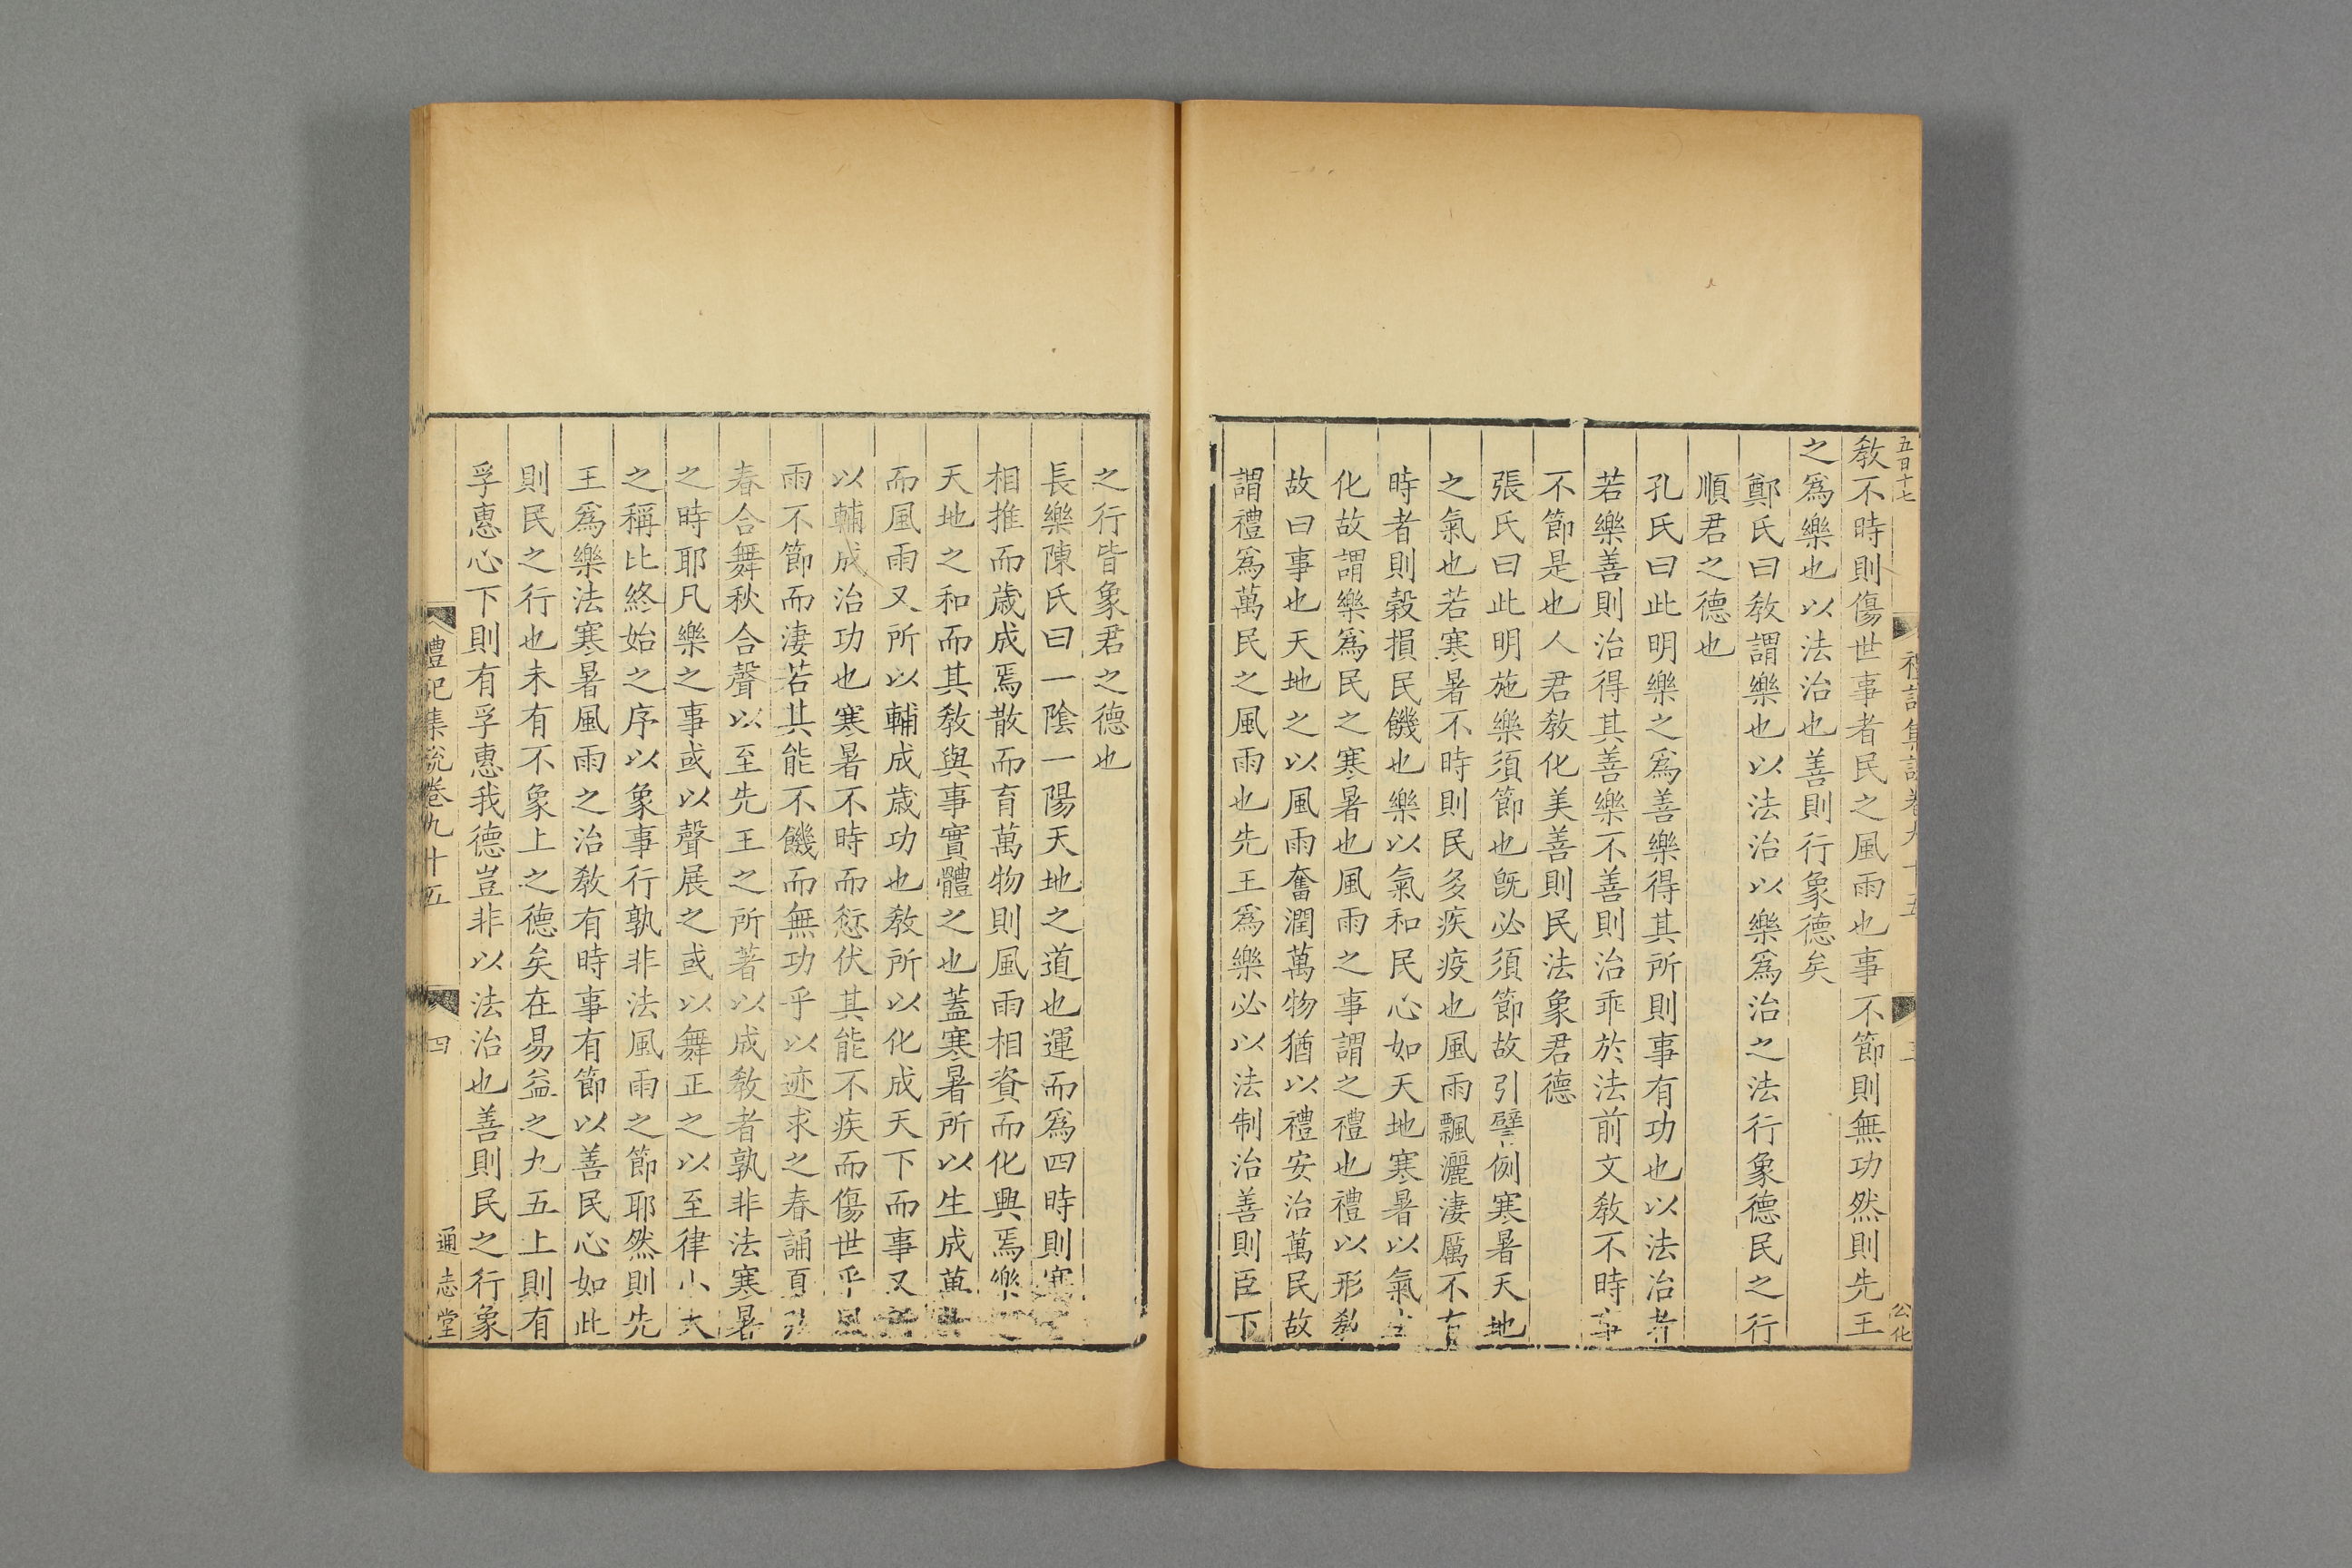 五百十七
教不時則傷世事者民之風雨也事不節則無功然則先王
之爲樂也以法治也善則行象德矣
鄭氏曰教謂樂也以法治以樂爲治之法行象德民之行
順君之德也
孔氏曰此明樂之爲善樂得其所則事有功也以法治者
若樂善則治得其善樂不善則治乖於法前文教不時事
不節是也人君教化美善則民法象君德
張氏曰此明施樂須節也旣必須節故引譬例寒暑天地
之氣也若寒暑不時則民多疾疫也風雨飄灑淒厲不有
時者則穀損民饑也樂以氣和民心如天地寒暑以氣生
化故謂樂爲民之寒暑也風雨之事謂之禮也禮以形教
故曰事也天地之以風雨奮潤萬物猶以禮安治萬民故
謂禮爲萬民之風雨也先王爲樂必以法制治善則臣下
之行皆象君之德也
長樂陳氏曰一陰一陽天地之道也運而爲四時則寒
相推而歲成焉散而育萬物則風雨相資而化興焉樂
天地之和而其教與事實體之也蓋寒暑所以生成萬
而風雨又所以輔成歲功也教所以化成天下而事又
以輔成治功也寒暑不時而愆伏其能不疾而傷世乎風
雨不節而淒若其能不饑而無功乎以迹求之春誦夏弦
春合舞秋合聲以至先王之所著以成教者孰非法寒暑
之時耶凡樂之事或以聲展之或以舞正之以至律小大
之稱比終始之序以象事行孰非法風雨之節耶然則先
王爲樂法寒暑風雨之治教有時事有節以善民心如此
則民之行也未有不象上之德矣在易益之九五上則有
孚惠心下則有孚惠我德豈非以法治也善則民之行象
禮記集說卷九十五 四 通志堂